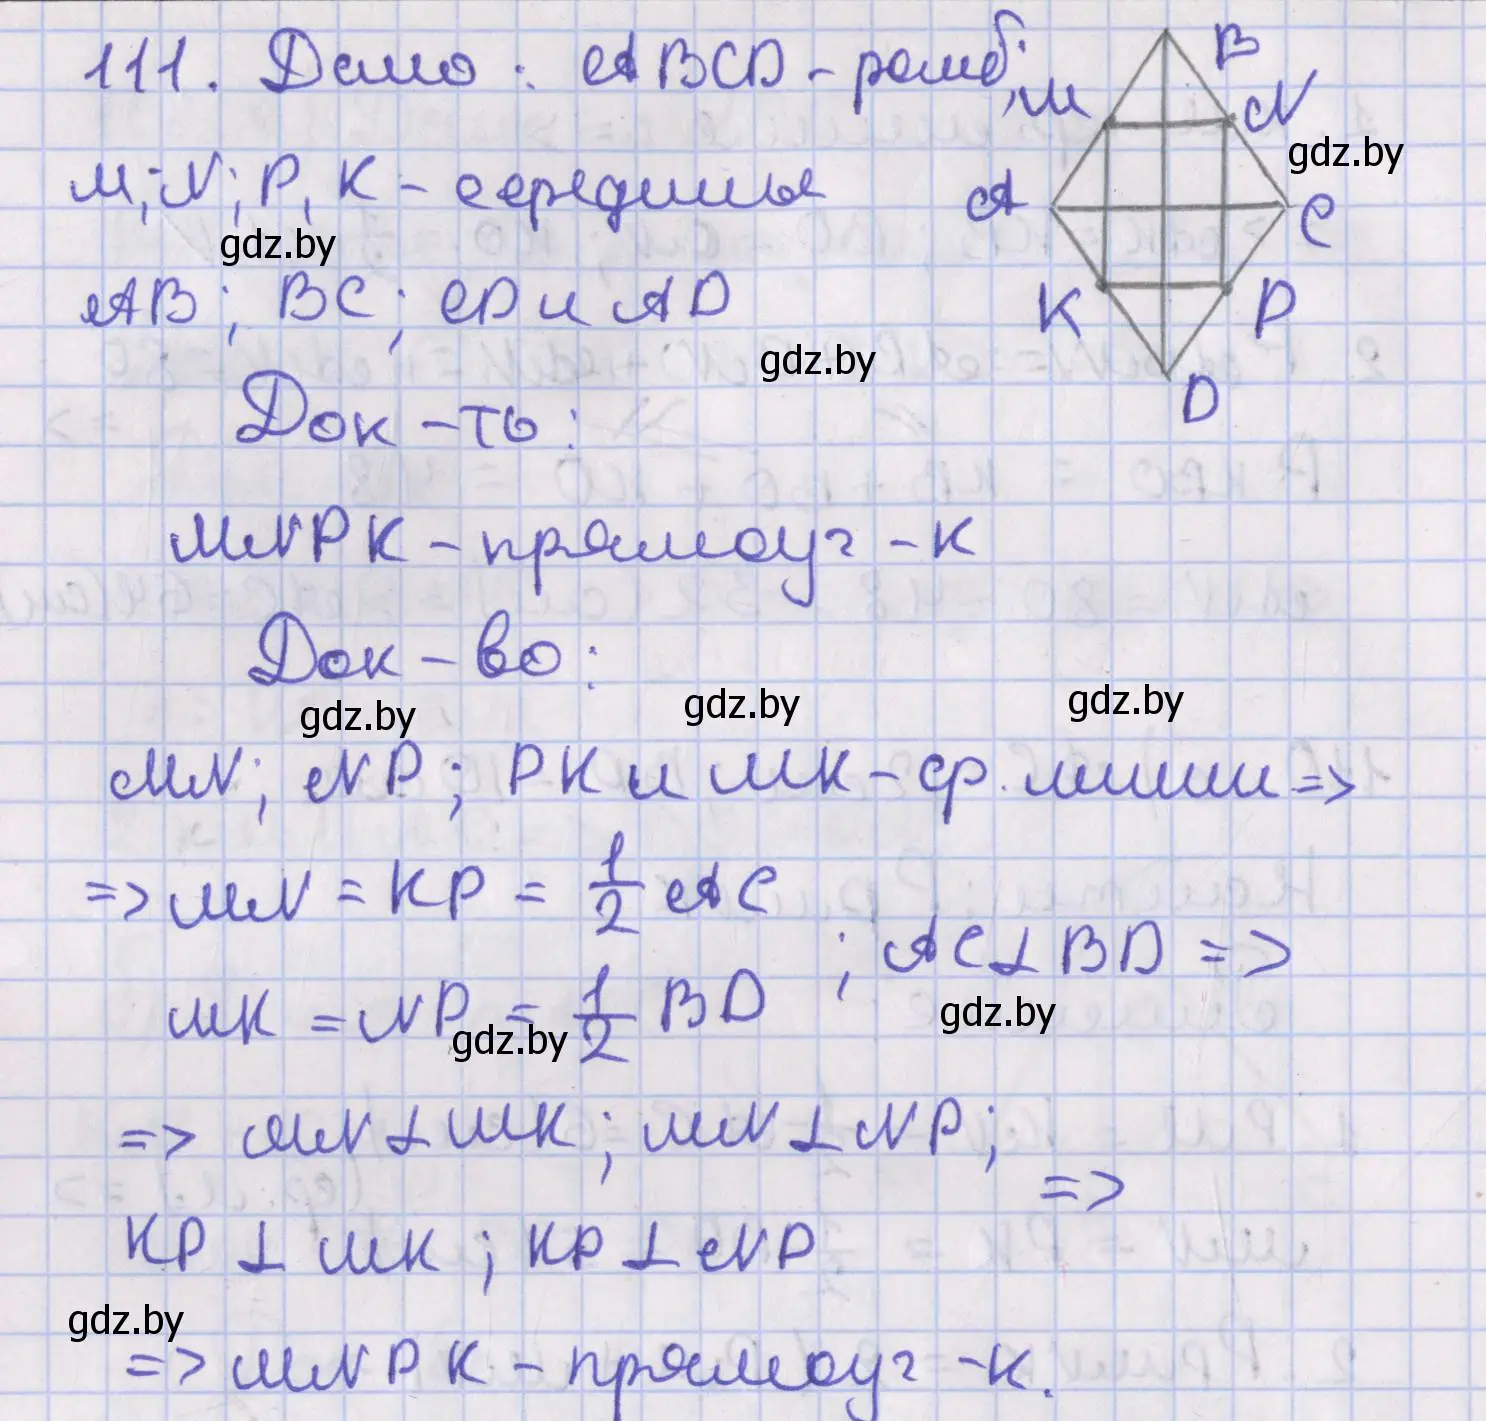 111. Дано: ABCD - ромб;
M; N; P; K - середины
AB; BC; CD и AD
Док-ть:
MNPK - прямоуг-к
Док-во:
MN; NP; PK и MK - ср. линии =>
=> MN = KP = 1/2 AC
MK = NP = 1/2 BD ; AC ⊥ BD =>
=> MN ⊥ MK; MN ⊥ NP;
KP ⊥ MK; KP ⊥ NP =>
=> MNPK - прямоуг-к.
B
M
N
A
C
K
P
D
gdz.by
gdz.by
gdz.by
gdz.by
gdz.by
gdz.by
gdz.by
gdz.by
gdz.by